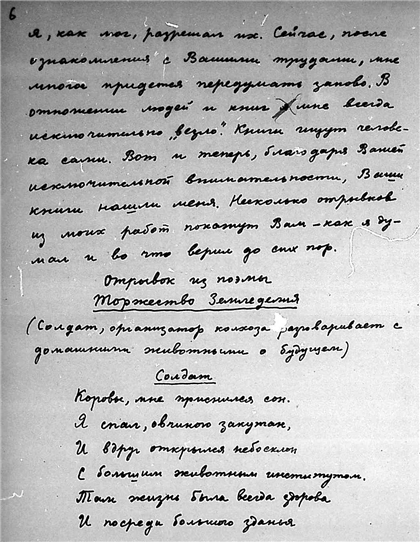 6
я, как мог, разрешал их. Сейчас, после
ознакомления с Вашими трудами, мне
многое придется передумать заново. В
отношении людей и книг мне всегда
исключительно „везло“. Книги ищут челове-
ка сами. Вот и теперь, благодаря Вашей
исключительной внимательности, Ваши
книги нашли меня. Несколько отрывков
из моих работ покажут Вам – как я ду-
мал и во что верил до сих пор.
Отрывок из поэмы
Торжество Земледелия
(Солдат, организатор колхоза разговаривает с
домашними животными о будущем)
Солдат
Коровы, мне приснился сон.
Я спал, овчиною закутан,
И вдруг открылся небосклон
С большим животным институтом.
Там жизнь была всегда здорова
И посреди большого зданья